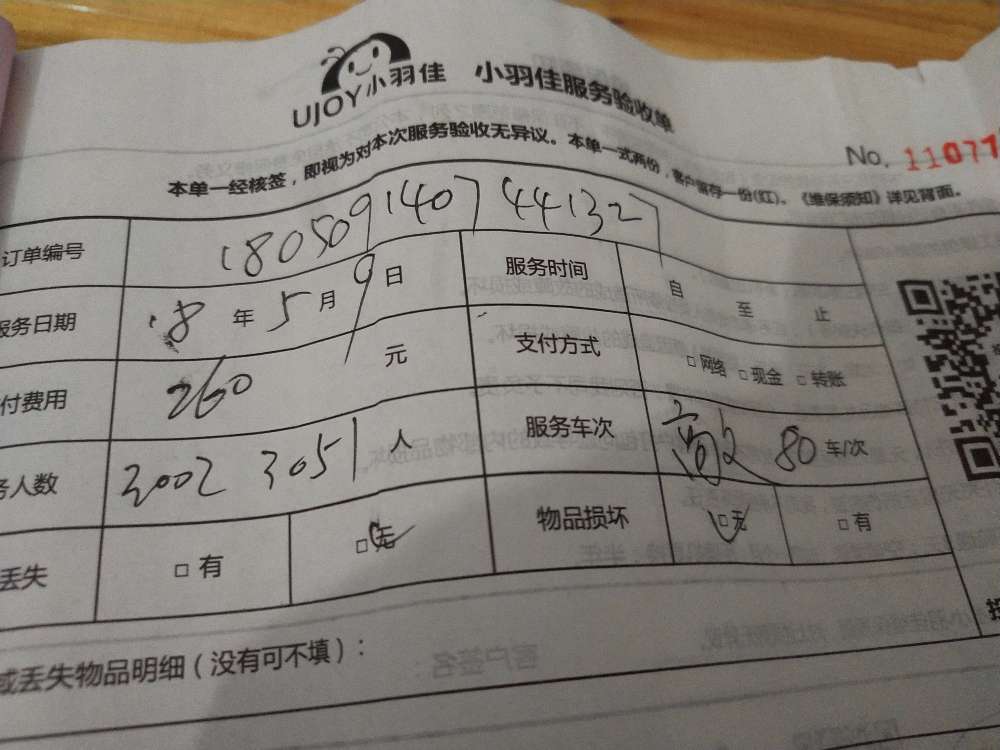 UJOY小羽佳 小羽佳服务验收单
本单一经核签，即视为对本次服务验收无异议。本单一式两份，客户留存一份(红)。《维保须知》详见背面。
No. 11071
订单编号 1805091407441327
服务日期 18 年 5 月 9 日 服务时间 自 至 止
付费用 260 元 支付方式 □网络 □现金 □转账
务人数 3002 3051 人 服务车次 80 车/次
丢失 □ 有 □ 无 物品损坏 □无 □有
或丢失物品明细（没有可不填）：
客户签名：